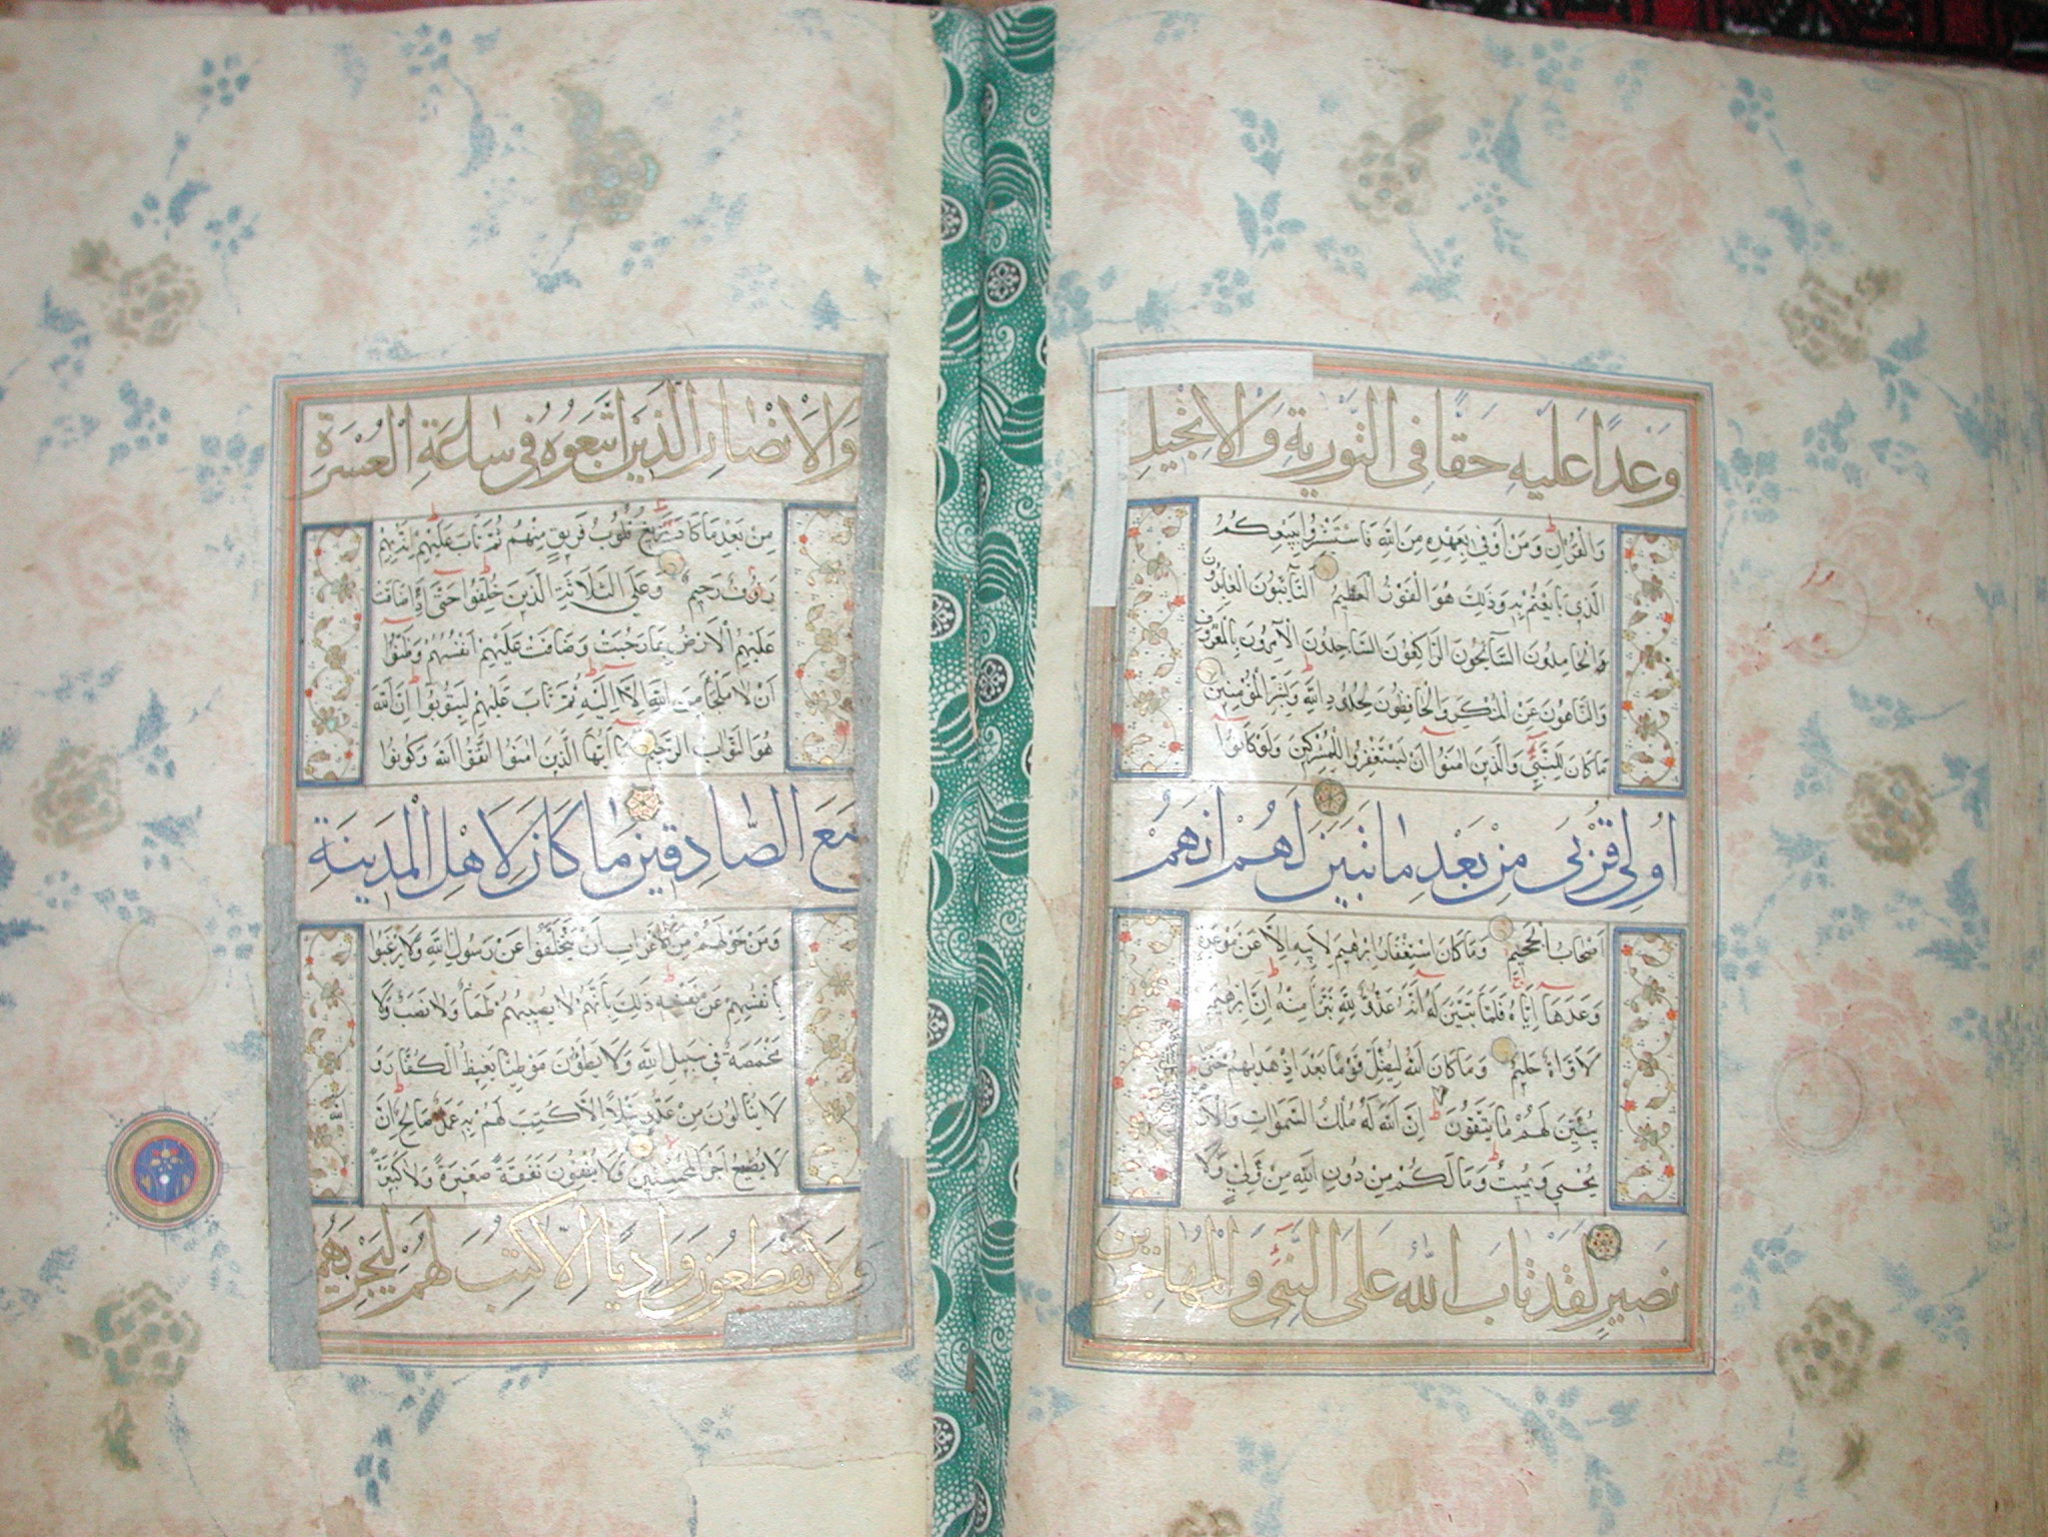 وَعْدًا عَلَيْهِ حَقًّا فِي التَّوْرٰيةِ وَالْاِنْجِيلِ
وَالْقُرْاٰنِ وَمَنْ اَوْفٰى بِعَهْدِهِ مِنَ اللّٰهِ فَاسْتَبْشِرُوا بِبَيْعِكُمُ
الَّذِي بَايَعْتُمْ بِهِ وَذٰلِكَ هُوَ الْفَوْزُ الْعَظِيمُ التَّآئِبُونَ الْعَابِدُونَ
الْحَامِدُونَ السَّآئِحُونَ الرَّاكِعُونَ السَّاجِدُونَ الْاٰمِرُونَ بِالْمَعْرُوفِ
وَالنَّاهُونَ عَنِ الْمُنْكَرِ وَالْحَافِظُونَ لِحُدُودِ اللّٰهِ وَبَشِّرِ الْمُؤْمِنِينَ
مَا كَانَ لِلنَّبِيِّ وَالَّذِينَ اٰمَنُوا اَنْ يَسْتَغْفِرُوا لِلْمُشْرِكِينَ وَلَوْ كَانُوا
اُولِي قُرْبٰى مِنْ بَعْدِ مَا تَبَيَّنَ لَهُمْ اَنَّهُمْ
اَصْحَابُ الْجَحِيمِ وَمَا كَانَ اسْتِغْفَارُ اِبْرٰهِيمَ لِاَبِيهِ اِلَّا عَنْ مَوْعِدَةٍ
وَعَدَهَا اِيَّاهُ فَلَمَّا تَبَيَّنَ لَهُ اَنَّهُ عَدُوٌّ لِلّٰهِ تَبَرَّاَ مِنْهُ اِنَّ اِبْرٰهِيمَ
لَاَوَّاهٌ حَلِيمٌ وَمَا كَانَ اللّٰهُ لِيُضِلَّ قَوْمًا بَعْدَ اِذْ هَدٰيهُمْ حَتّٰى
يُبَيِّنَ لَهُمْ مَا يَتَّقُونَ اِنَّ اللّٰهَ لَهُ مُلْكُ السَّمٰوَاتِ وَالْاَرْضِ
يُحْيِي وَيُمِيتُ وَمَا لَكُمْ مِنْ دُونِ اللّٰهِ مِنْ وَلِيٍّ وَلَا
نَصِيرٍ لَقَدْ تَابَ اللّٰهُ عَلَى النَّبِيِّ وَالْمُهَاجِرِينَ
وَالْاَنْصَارِ الَّذِينَ اتَّبَعُوهُ فِي سَاعَةِ الْعُسْرَةِ
مِنْ بَعْدِ مَا كَادَ يَزِيغُ قُلُوبُ فَرِيقٍ مِنْهُمْ ثُمَّ تَابَ عَلَيْهِمْ اِنَّهُ بِهِمْ
رَؤُفٌ رَحِيمٌ وَعَلَى الثَّلَاثَةِ الَّذِينَ خُلِّفُوا حَتّٰى اِذَا ضَاقَتْ
عَلَيْهِمُ الْاَرْضُ بِمَا رَحُبَتْ وَضَاقَتْ عَلَيْهِمْ اَنْفُسُهُمْ وَظَنُّوا
اَنْ لَا مَلْجَاَ مِنَ اللّٰهِ اِلَّا اِلَيْهِ ثُمَّ تَابَ عَلَيْهِمْ لِيَتُوبُوا اِنَّ اللّٰهَ
هُوَ التَّوَّابُ الرَّحِيمُ يَا اَيُّهَا الَّذِينَ اٰمَنُوا اتَّقُوا اللّٰهَ وَكُونُوا
مَعَ الصَّادِقِينَ مَا كَانَ لِاَهْلِ الْمَدِينَةِ
وَمَنْ حَوْلَهُمْ مِنَ الْاَعْرَابِ اَنْ يَتَخَلَّفُوا عَنْ رَسُولِ اللّٰهِ وَلَا يَرْغَبُوا
بِاَنْفُسِهِمْ عَنْ نَفْسِهِ ذٰلِكَ بِاَنَّهُمْ لَا يُصِيبُهُمْ ظَمَأٌ وَلَا نَصَبٌ وَلَا
مَخْمَصَةٌ فِي سَبِيلِ اللّٰهِ وَلَا يَطَؤُنَ مَوْطِئًا يَغِيظُ الْكُفَّارَ وَ
لَا يَنَالُونَ مِنْ عَدُوٍّ نَيْلًا اِلَّا كُتِبَ لَهُمْ بِهِ عَمَلٌ صَالِحٌ اِنَّ اللّٰهَ
لَا يُضِيعُ اَجْرَ الْمُحْسِنِينَ وَلَا يُنْفِقُونَ نَفَقَةً صَغِيرَةً وَلَا كَبِيرَةً
وَلَا يَقْطَعُونَ وَادِيًا اِلَّا كُتِبَ لَهُمْ لِيَجْزِيَهُمُ